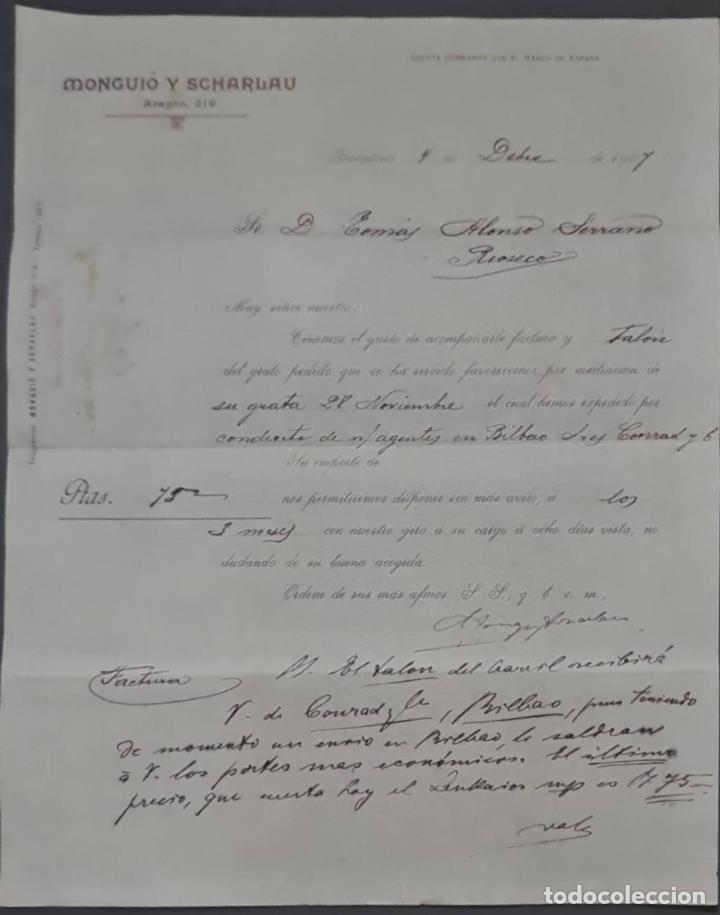 CUENTA CORRIENTE CON EL BANCO DE ESPAÑA
MONGUIÓ Y SCHARLAU
Aragón, 216
Barcelona 4 de Dbre de 1907
Sr. D. Tomás Alonso Serrano
Rioseco
Muy señor nuestro:
Tenemos el gusto de acompañarle factura y talón
del grato pedido que se ha servido favorecernos por mediación de
su grata 28 Noviembre el cual hemos expedido por
conducto de n/ agentes en Bilbao Sres Conrad y
Su importe de
Ptas. 75
nos permitiremos disponer sin más aviso, á los
3 meses con nuestro giro á su cargo á ocho días vista, no
dudando de su buena acogida.
Ordene de sus más afmos. S. S., q. b. s. m.,
Factura
El talon del carril recibirá
V. de Conrad y Cª, Bilbao, pues teniendo
de momento un envio en Bilbao le saldran
a V. los portes mas económicos. El último
precio, que cuesta hoy el es 75
vale
MONGUIÓ Y SCHARLAU
todocoleccion